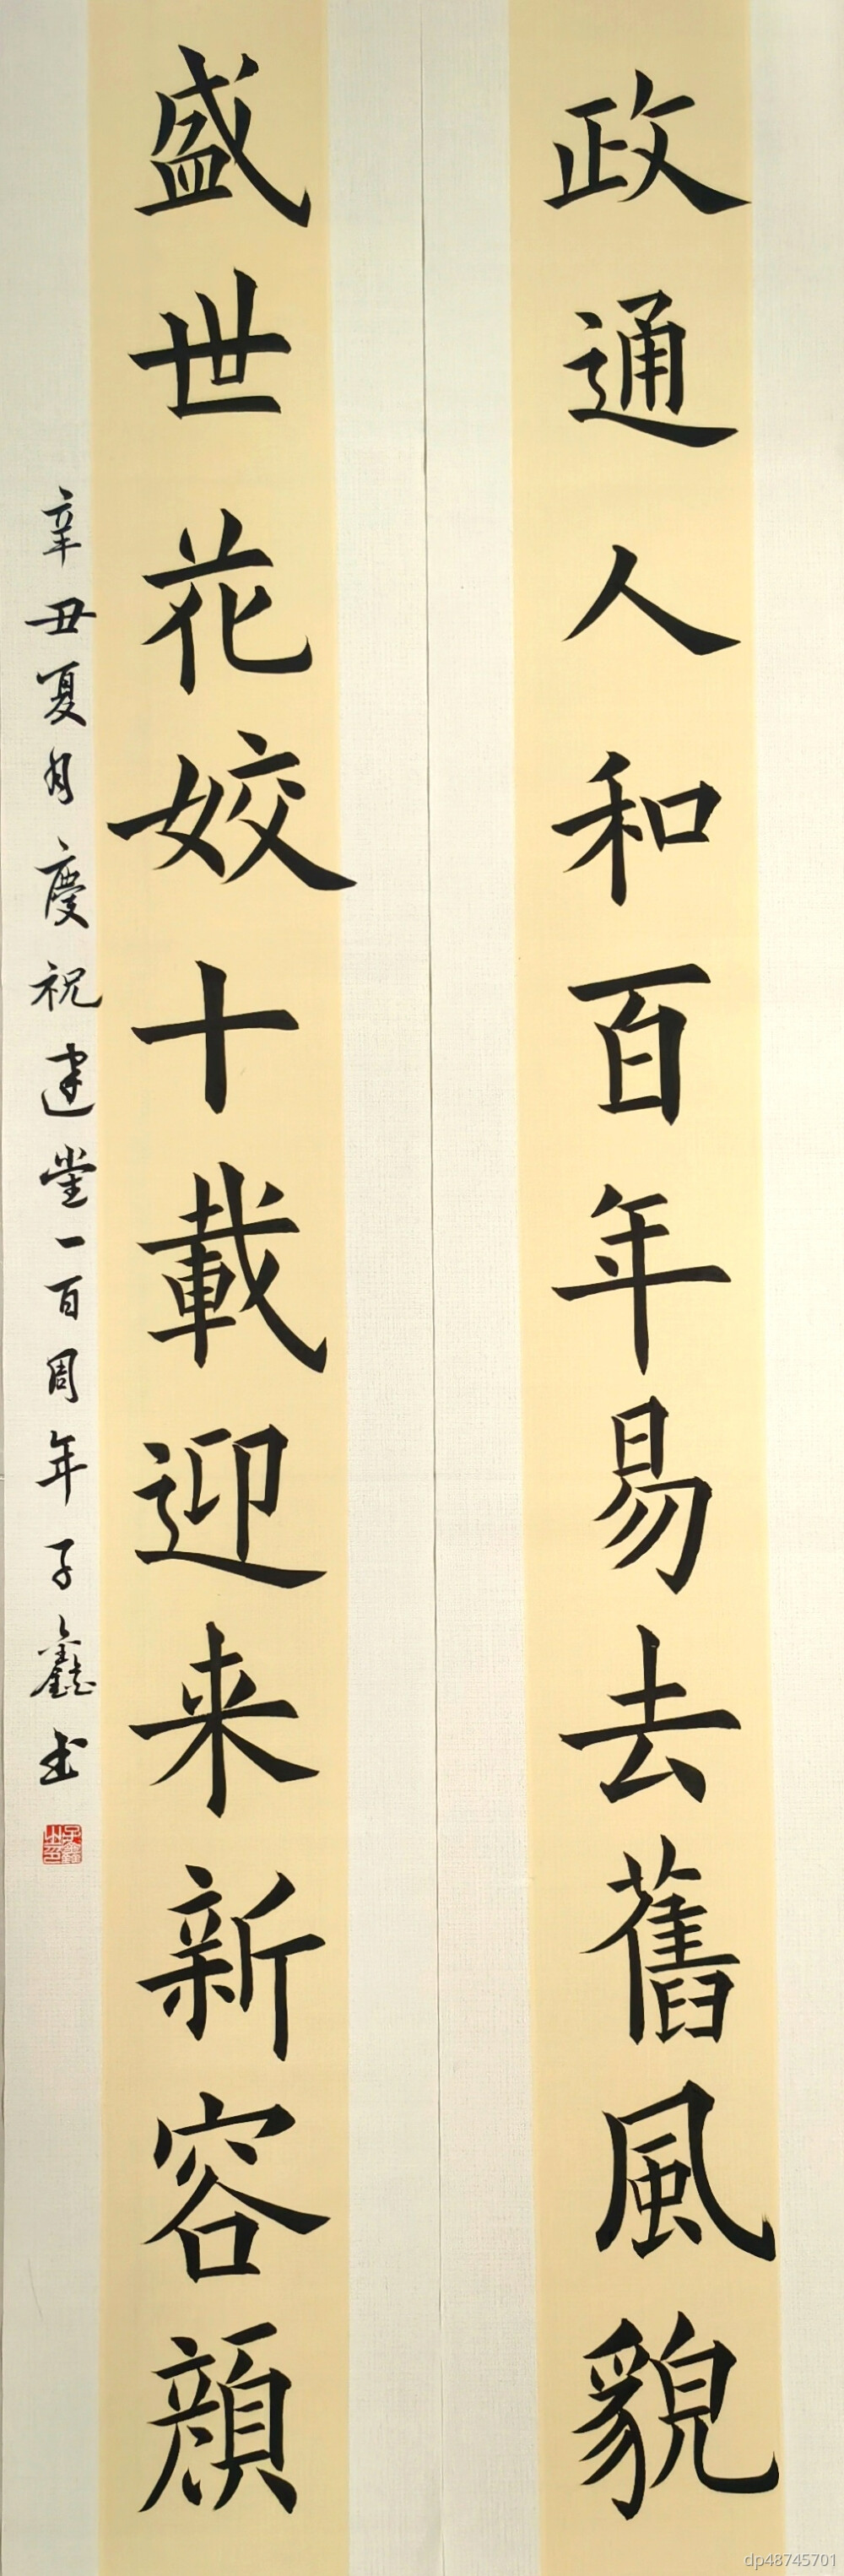 政通人和百年易去舊風貌
盛世花姣十載迎来新容顔
辛丑夏月慶祝建党一百周年子鑫书
dp48745701